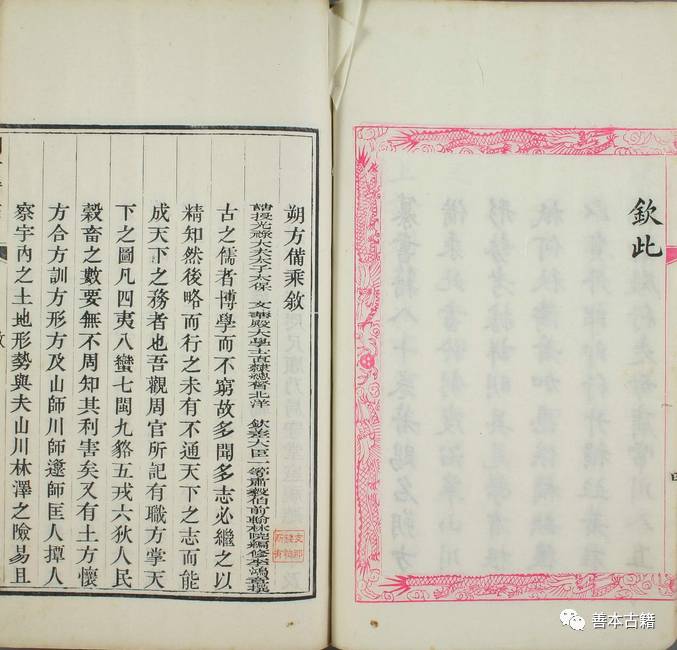 欽此
朔方備乘敘
誥授光祿大夫太子太保 文華殿大學士直隸總督北洋 欽差大臣一等肅毅伯前翰林院編修李鴻章撰
古之儒者博學而不窮故多聞多志必繼之以
精知然後略而行之未有不通天下之志而能
成天下之務者也吾觀周官所記有職方掌天
下之圖凡四夷八蠻七閩九貉五戎六狄人民
穀畜之數要無不周知其利害矣又有土方懷
方合方訓方形方及山師川師邍師匡人撢人
察宇內之土地形勢與夫山川林澤之險易且
善本古籍